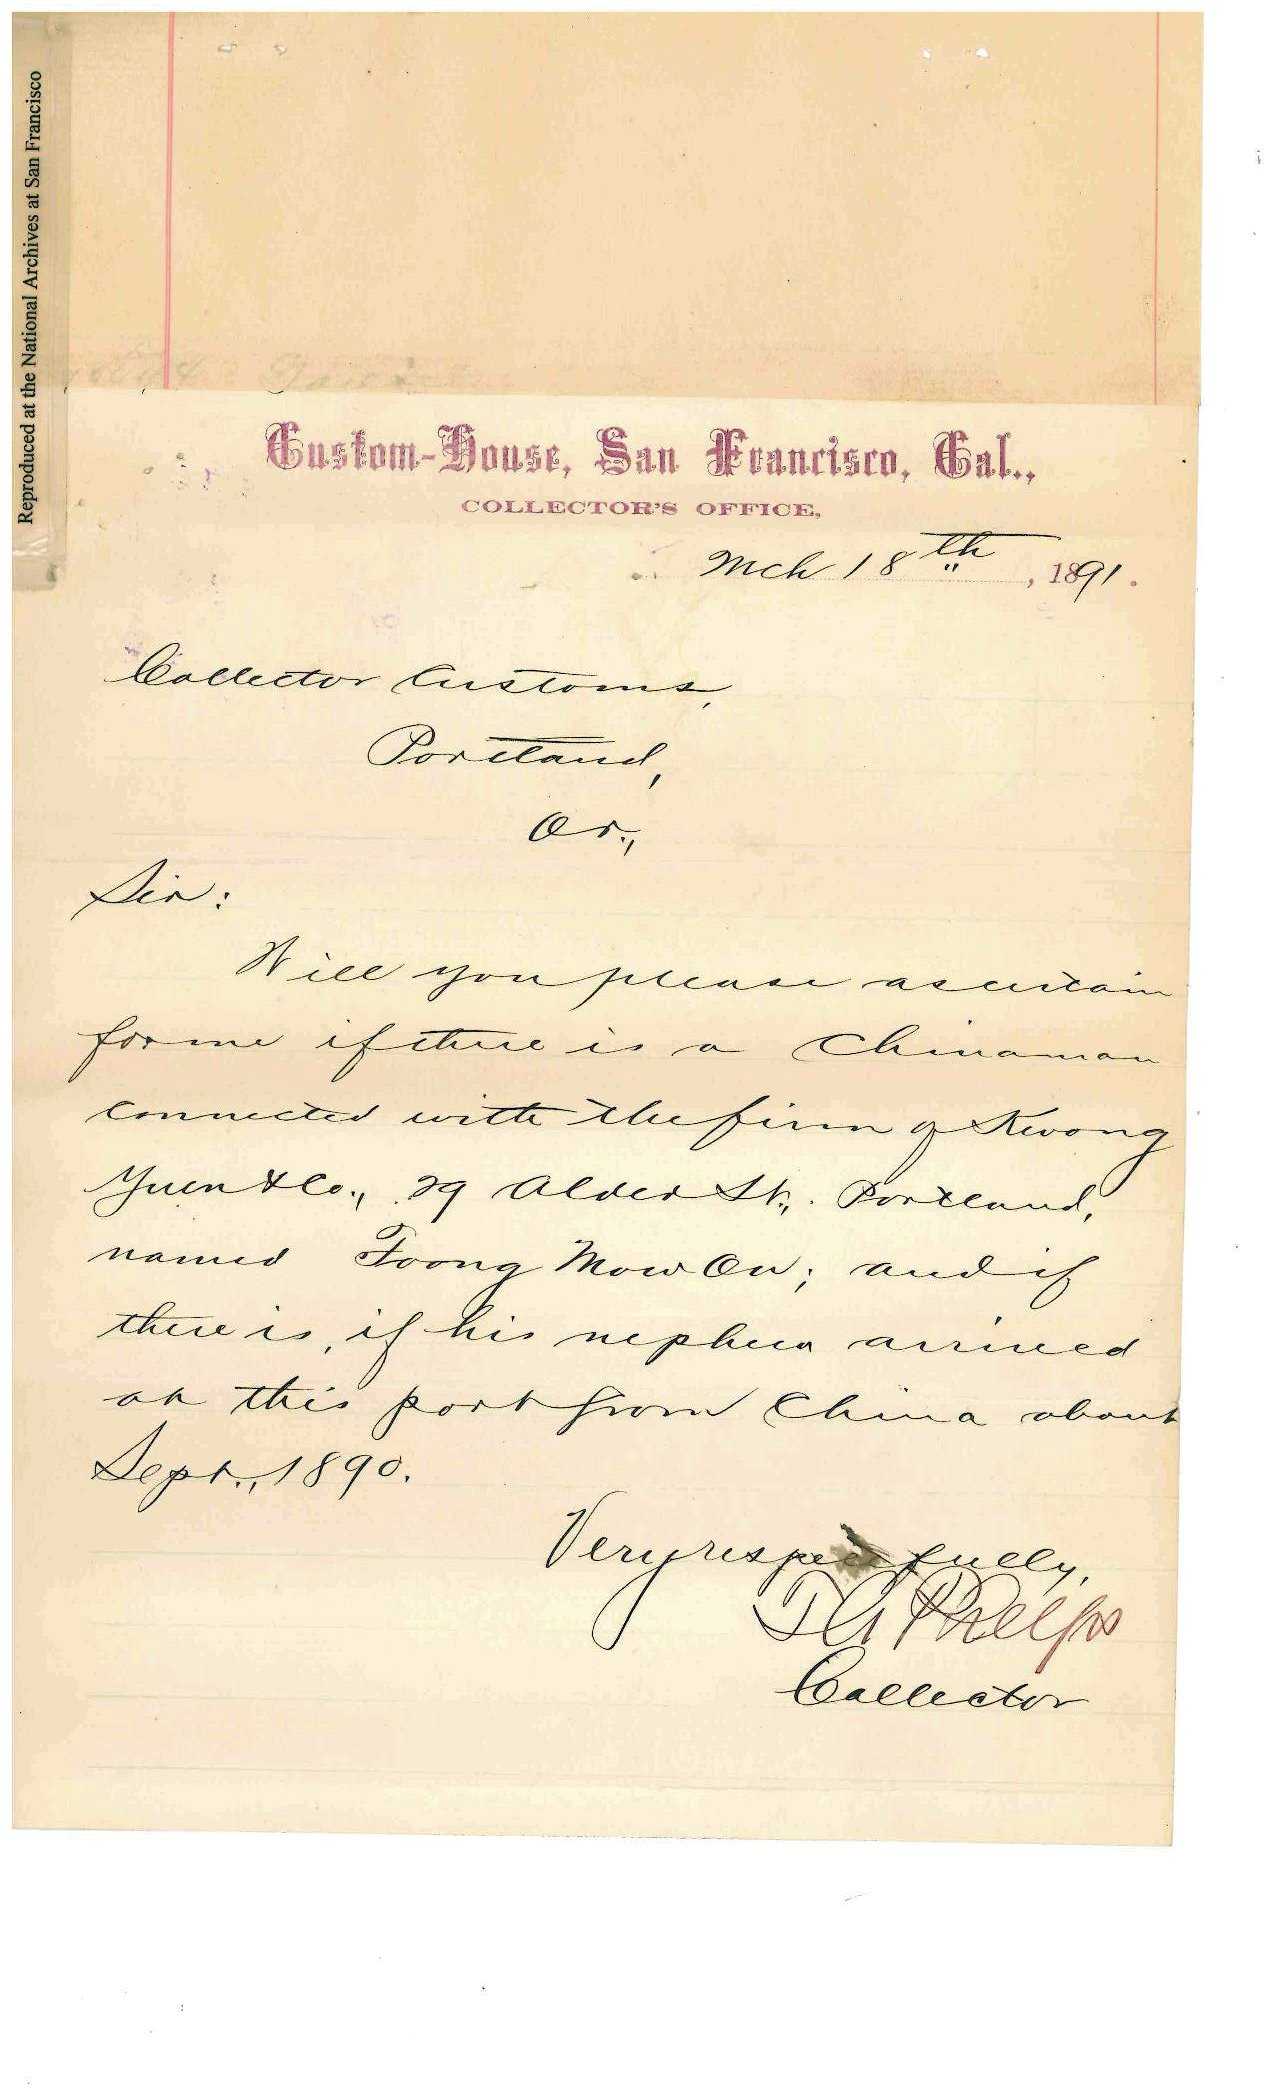 Reproduced at the National Archives at San Francisco
Custom-House, San Francisco, Cal.,
COLLECTOR'S OFFICE,
Mch 18th, 1891.
Collector Customs,
Portland,
Or.,
Sir:
Will you please ascertain
for me if there is a Chinaman
connected with the firm of Kwong
Yuen & Co., 29 Alder St., Portland,
named Toong Mow On; and if
there is, if his nephew arrived
at this port from China about
Sept., 1890.
Very respectfully,
T G Phelps
Collector